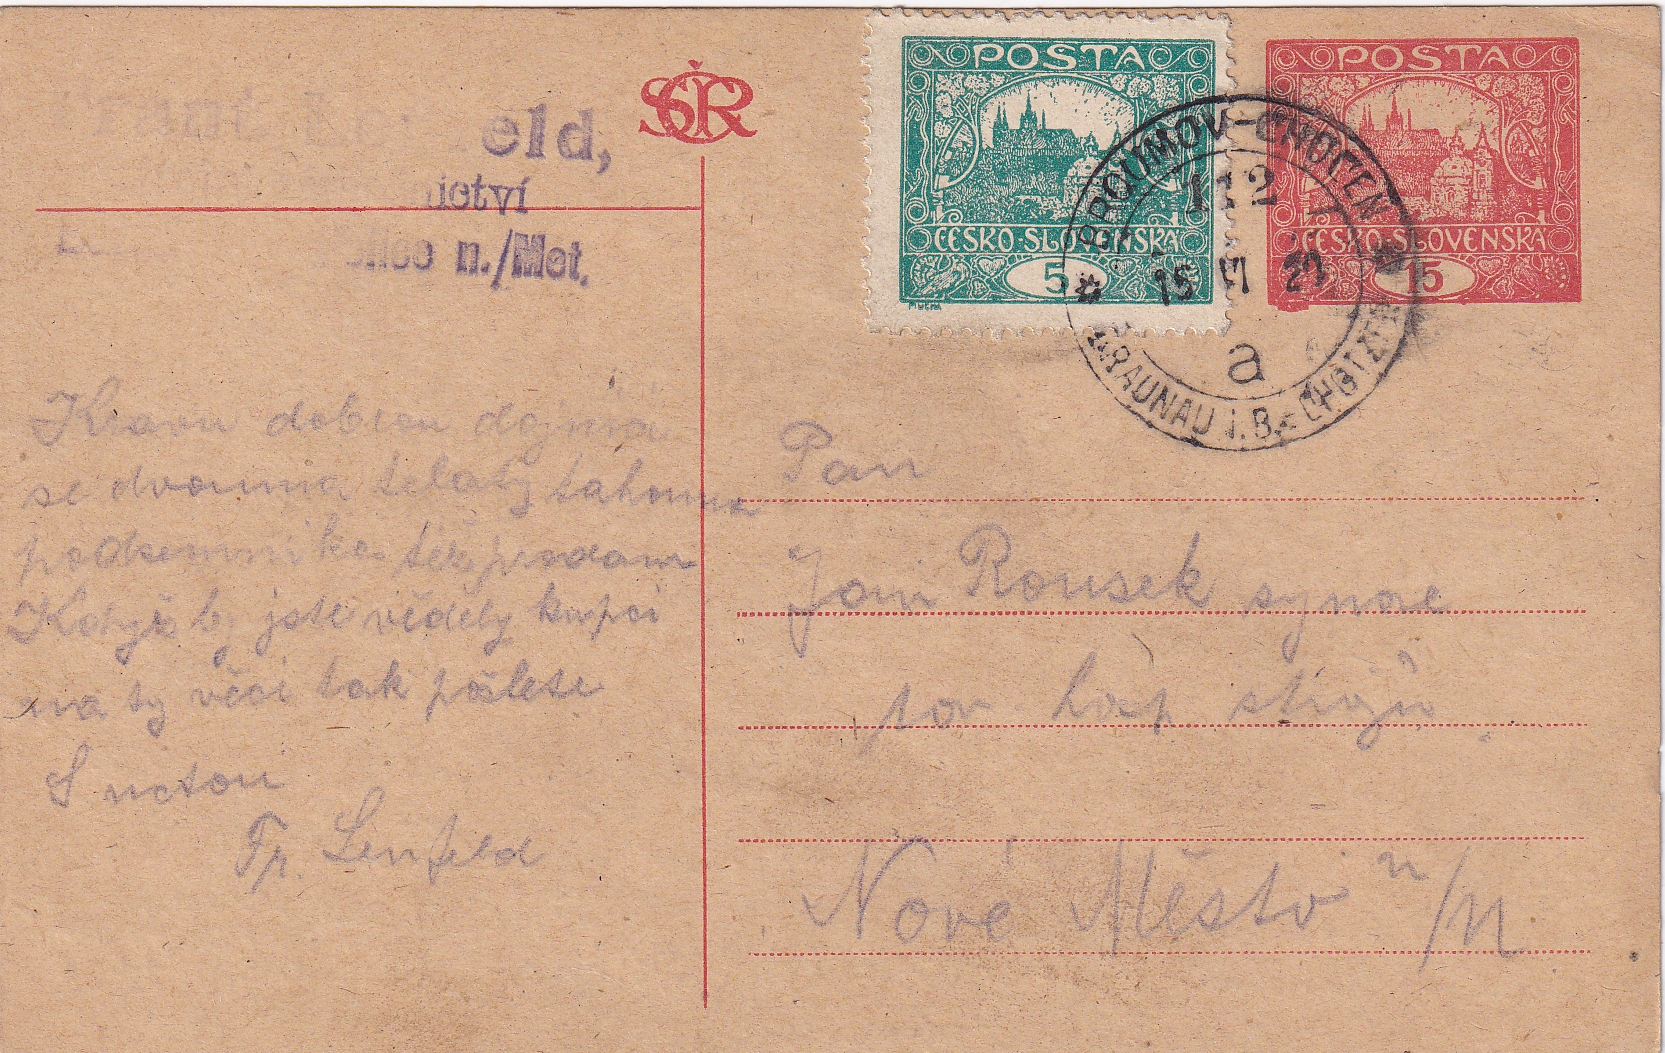 eld,
nictví
n./Met.
ČSR
POSTA
ČESKO·SLOVENSKÁ
5
POSTA
ČESKO·SLOVENSKÁ
15
BROUMOV-CHOCEŇ
112
15 VI 20
a
BRAUNAU i.B.-CHOTZEN
Kravu dobrou dojnou
se dvouma telaty tahouna
podsemníka též prodam
Když by jste věděly kupci
na ty věci tak pošlete
S uctou
Fr. Lenfeld
Pan
Jan Rousek synove
tov. hosp. strojů
Nové Město n/M